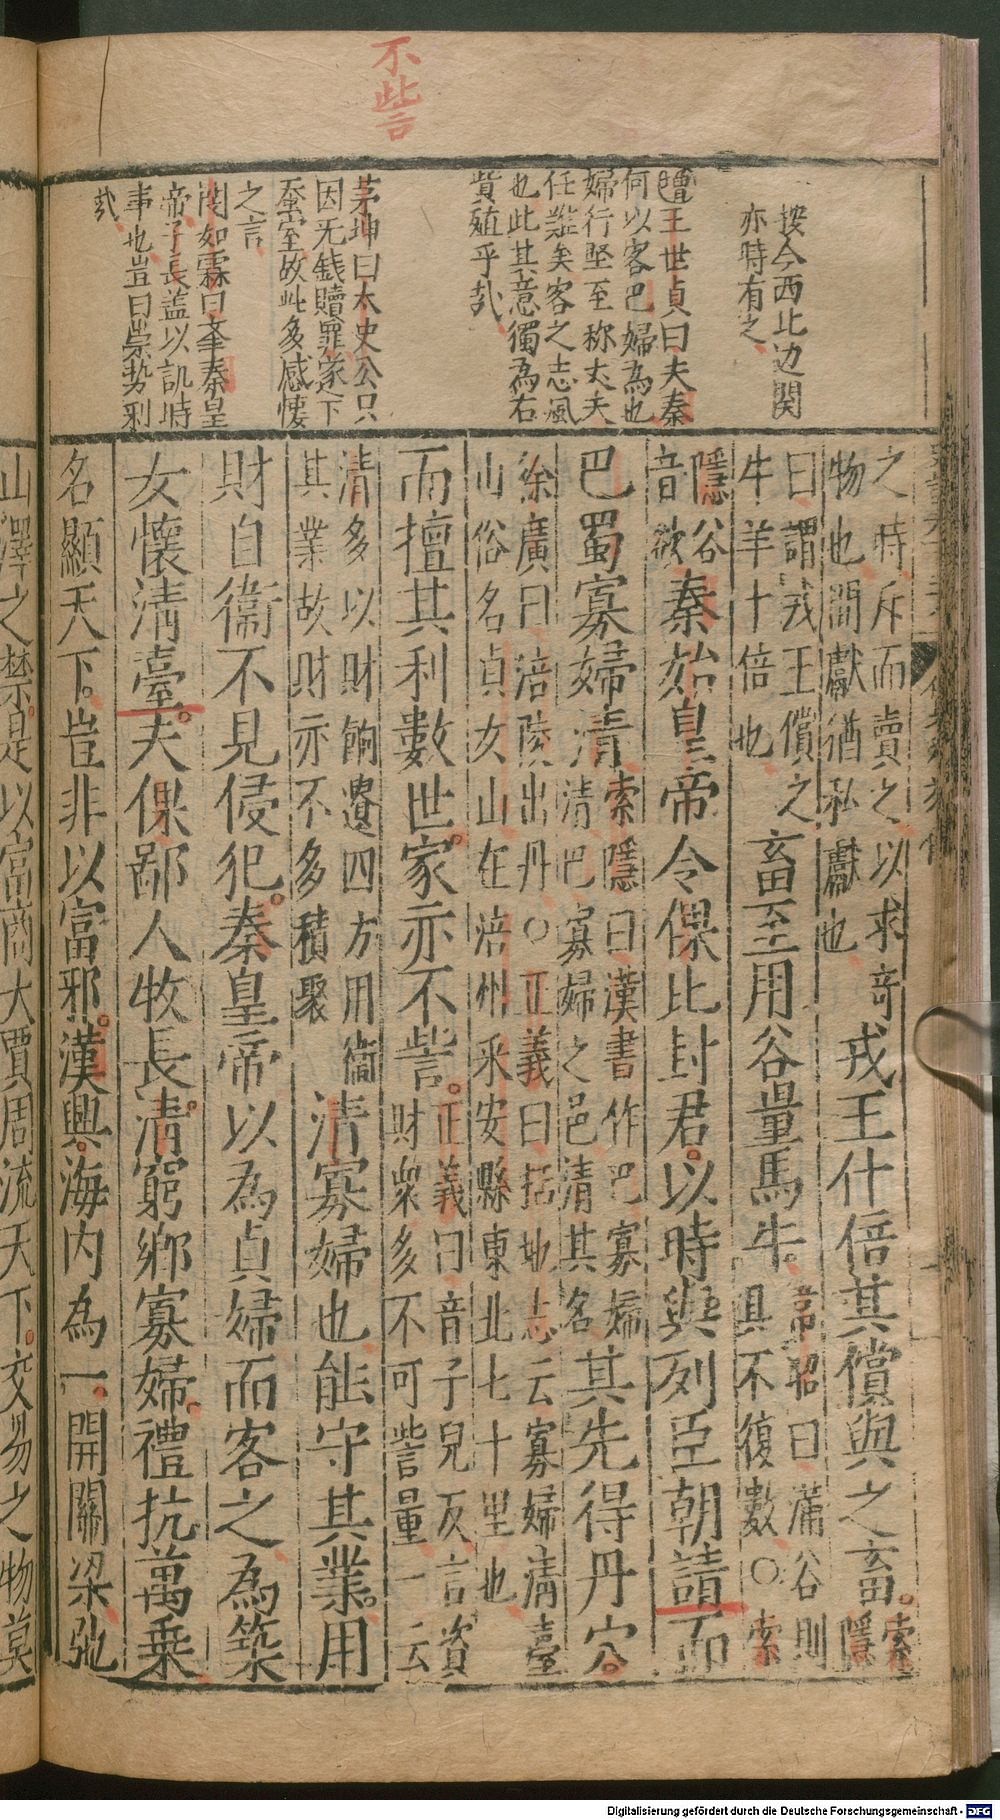 不訾
按今西北边関
亦時有之
王世貞曰夫秦
何以客巴婦為也
婦行堅至称大夫
任難矣客之志風
也此其意獨為右
貲殖乎哉
茅坤曰太史公只
因旡錢贖罪家下
蚕室故此多感悽
之言
閔如霖曰奎秦皇
帝子長盖以訊時
事也豈曰崇势利
哉
之時斥而賣之以求竒
物也間獻猶私獻也
戎王什倍其償與之畜索
隱
曰謂戎王償之
牛羊十倍也
畜至用谷量馬牛韋昭曰滿谷則
具不復數○索
隱谷
音欲
秦始皇帝令倮比封君以時與列臣朝請而
巴蜀寡婦清索隱曰漢書作巴寡婦
清巴寡婦之邑清其名
其先得丹穴
徐廣曰涪陵出丹○正義曰括地志云寡婦清臺
山俗名貞女山在涪州永安縣東北七十里也
而擅其利數世家亦不訾正義曰音子兒反言資
財衆多不可訾量一云
清多以財餉遺四方用衞
其業故財亦不多積聚
清寡婦也能守其業用
財自衞不見侵犯秦皇帝以為貞婦而客之為築
女懷清臺夫倮鄙人牧長清窮鄉寡婦禮抗萬乗
名顯天下豈非以富邪漢興海内為一開關梁弛
山澤之禁是以富商大賈周流天下交易之物莫
Digitalisierung gefördert durch die Deutsche Forschungsgemeinschaft - DFG